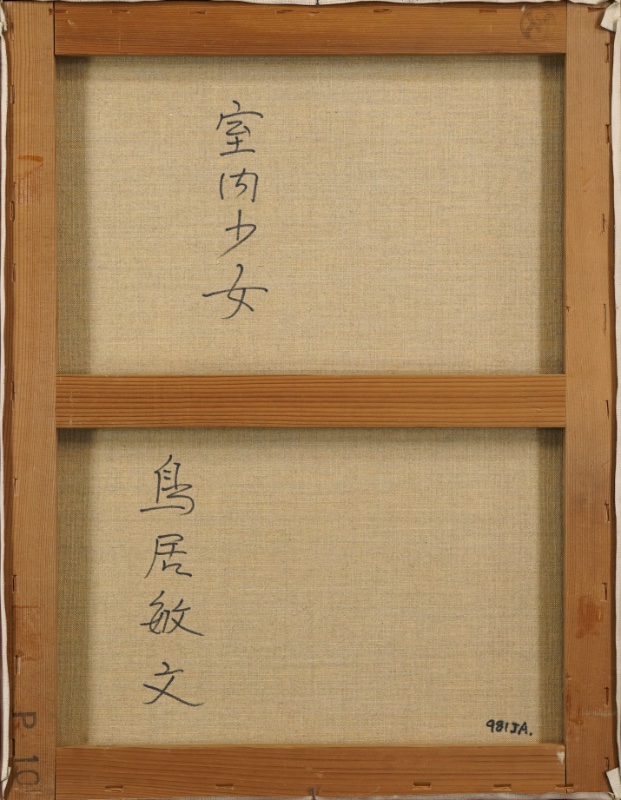 室内少女
鳥居敏文
981JA.
P-10